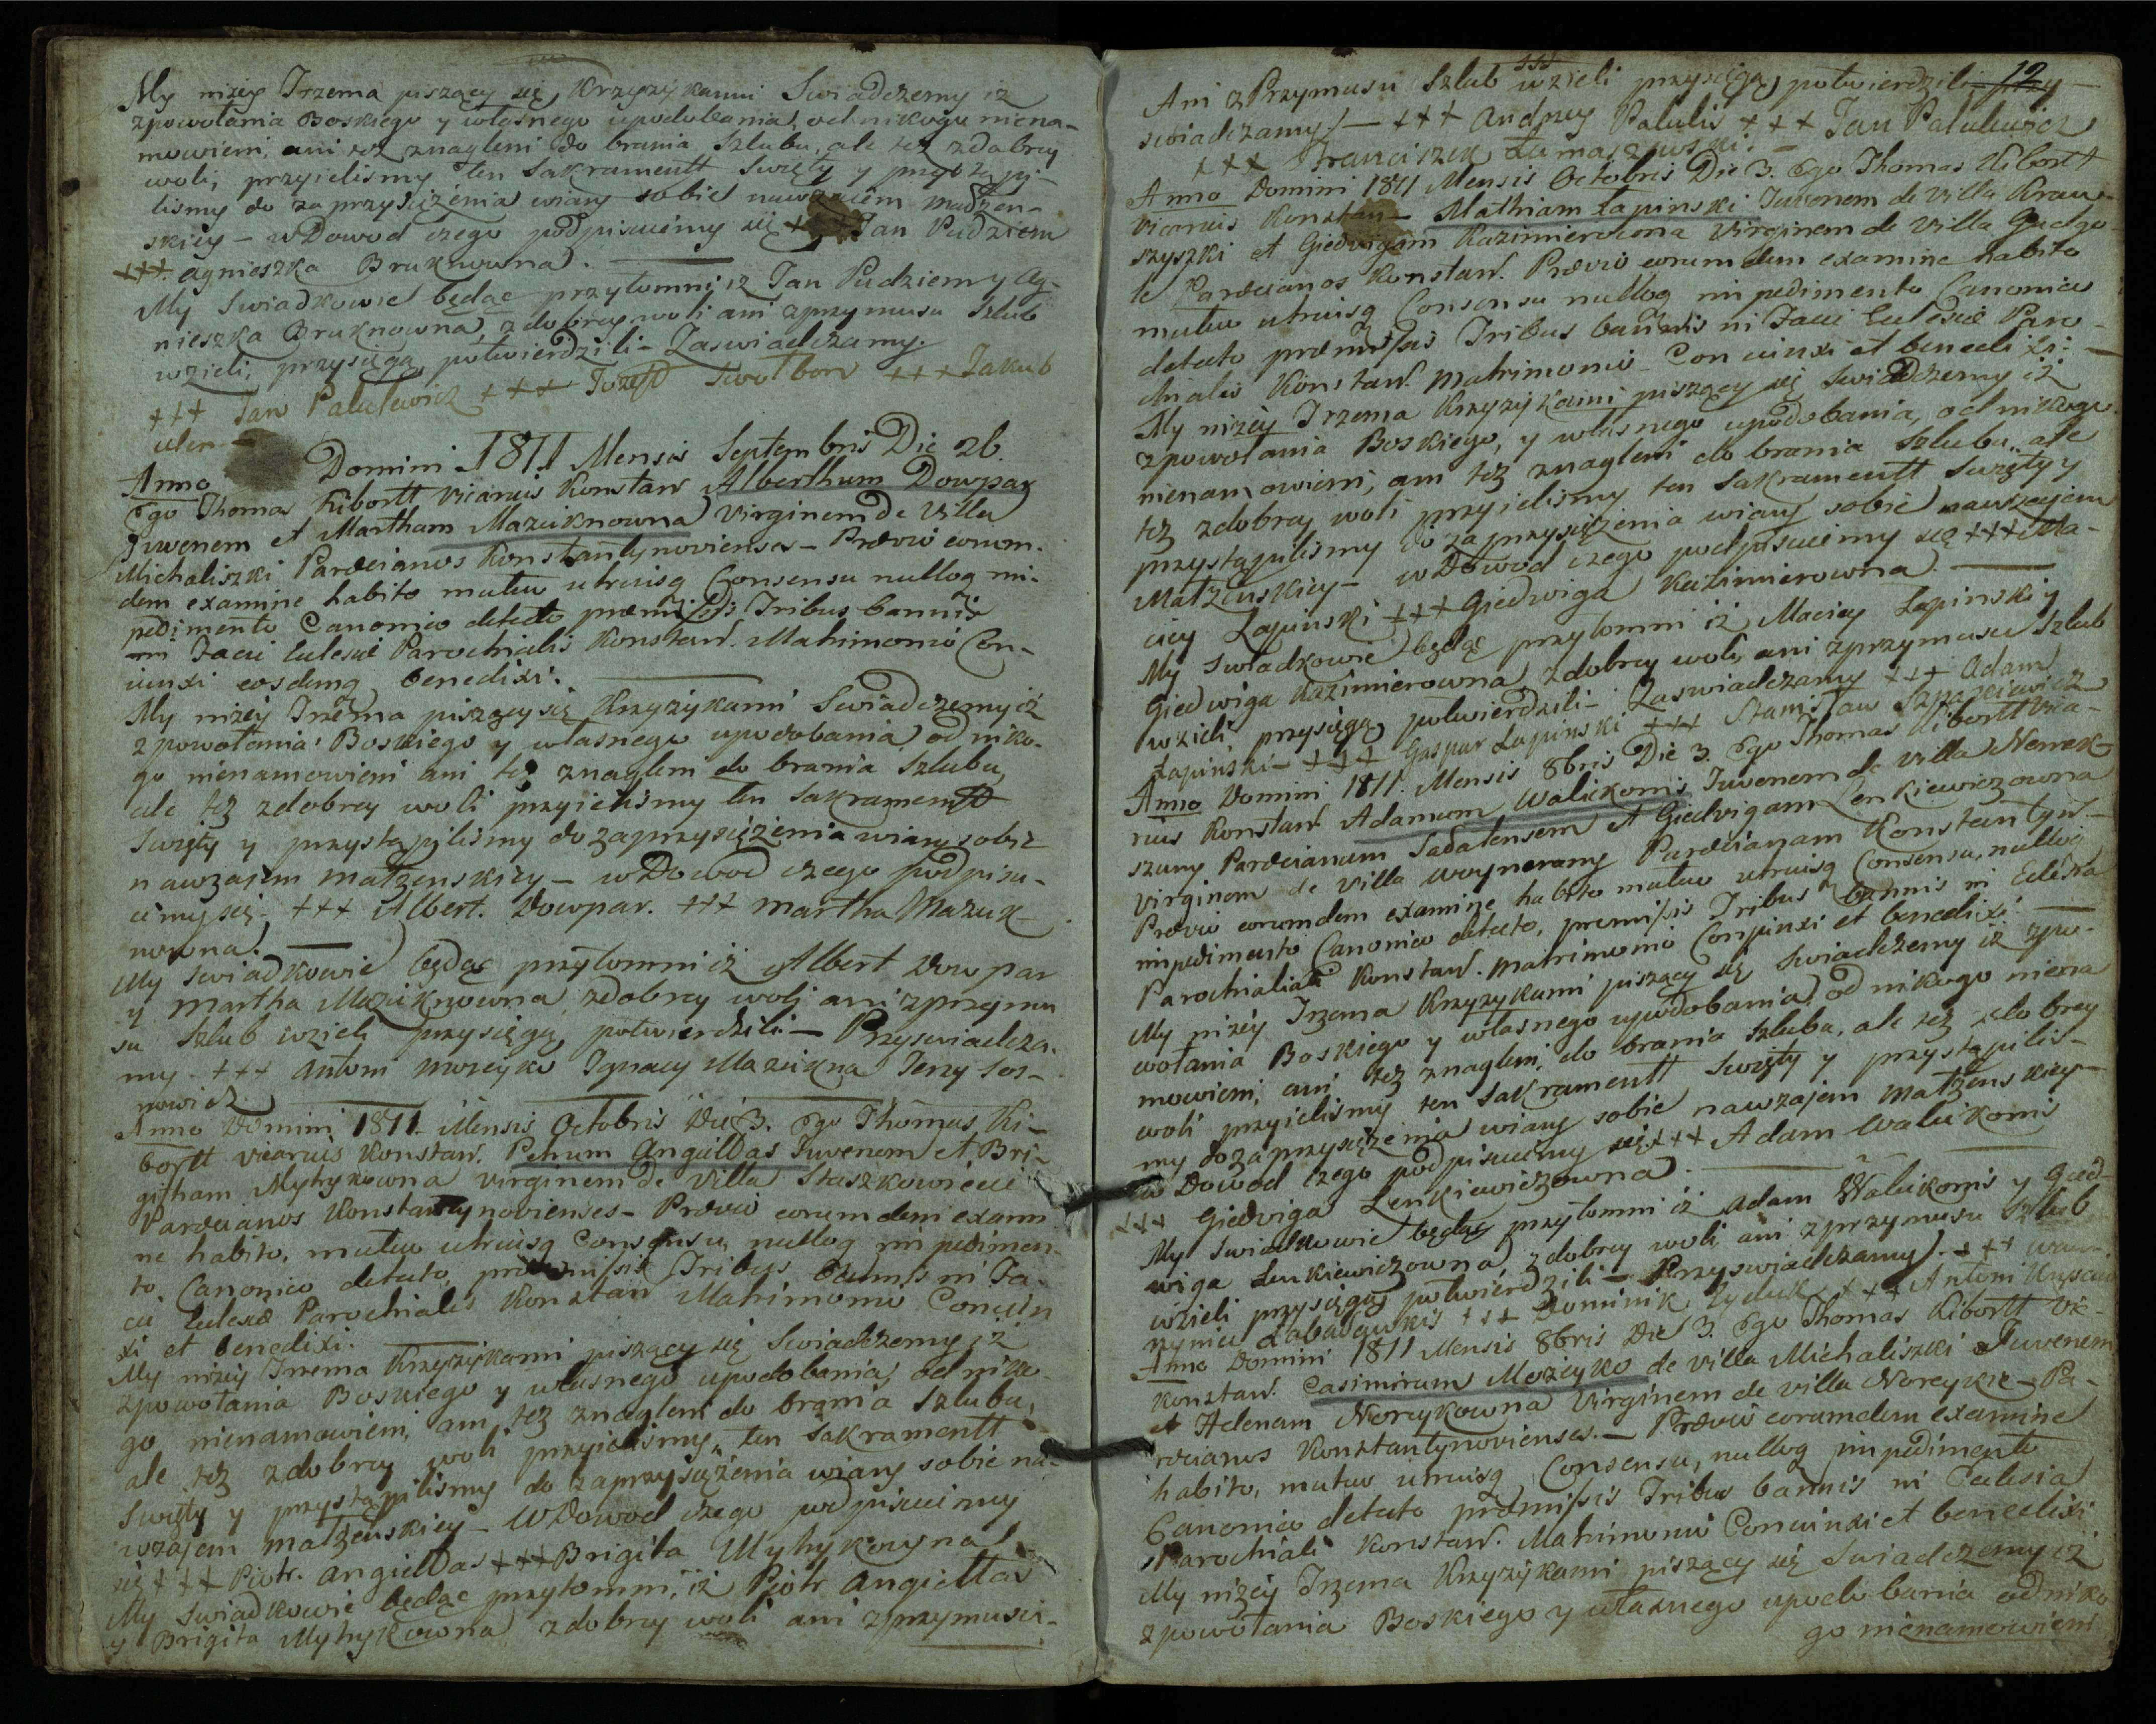 My nizey Trzema piszący się Krzyzykami Swiadczemy iz
zpowołania Boskiego y własnego upodobania, od nikogo niena-
mowieni, ani tez znagleni do brania Szlubu, ale tez zdobrey
woli, przyieliśmy ten Sakramentt Swięty y przystąpi-
lismy do zaprzysiężenia wiary sobie nawzaiem małżen-
skiey – w Dowod czego podpisuiemy się +++ Jan Pudziem
+++ Agnieszka Bruknowna.
My Swiadkowie będąc przytomni iz Jan Pudziem y Ag-
nieszka Bruknowna, zdobrey woli ani zprzymusu Szlub
wzieli, przysięgą potwierdzili – Zaswiadczamy.
+++ Jan Palulewicz +++ Jozeff +++ Jakub
Anno Domini 1811 Mensis Septembris Die 26.
Ego Thomas Kibortt Vicarius Konstan Alberthum Dowpar
Juvenem et Martham Mazuknowna Virginem de Villa
Michaliszki Paroecianos Konstantynovienses – Praevio eorum-
dem examine habito mutuo utriusq Consensu nulloq im-
pedimento Canonico detecto praemissis Tribus bannis
in Facie Eclesiae Parochialis Konstan. Matrimonio Con-
iunxi eosdemq benedixi.
My nizey Trzema piszący się Krzyzykami Swiadczemy iż
zpowołania Boskiego y własnego upodobania od niko-
go nienamowieni ani tez znagleni do brania Szlubu,
ale tez zdobrey woli przyielismy ten Sakramentt
Swięty y przystąpiliśmy do zaprzysiężenia wiary sobie
nawzajem małzenskiey – w Dowod czego podpisu-
iemy się – +++ Albert. Dowpar. +++ Martha Mazuk-
nowna.
My swiadkowie będąc przytomni iż Albert Dowpar
y Martha Mazuknowna, zdobrey woli ani zprzymu
su Szlub wzieli przysięgą potwierdzili – Przyswiadcza-
my +++ Antoni Mozeyko Ignacy Mazukna Jerzy Sos-
nowicz.
Anno Domini 1811. Mensis Octobris Die 3. Ego Thomas Ki-
bortt Vicarius Konstan. Petrum Angiełłas Juvenem et Bri-
githam Mytrykowna Virginem de Villa Staszkowięcie
Paroecianos Konstantynovienses – Praevio eorumdem exami
ne habito, mutuo utriusq Consensu, nulloq impedimen-
to, Canonico detecto, praemissis Tribus bannis in Fa-
cie Eclesiae Parochialis Konstan Matrimonio Coniun
xi et benedixi.
My nizey Trzema Krzyzykami piszący się Swiadczemy, iż
zpowołania Boskiego y własnego upodobania, od niko
go nienamowieni, ani tez znagleni do brania Szlubu,
ale tez zdobrey woli przyielismy ten Sakramentt
Swięty y przystąpilismy do zaprzysiężenia wiary sobie na-
wzajem małzenskiey – W Dowod czego podpisuiemy
się +++ Piotr. Angiełłas +++ Brigita Mytrykowna.
My swiadkowie będąc przytomni, iż Piotr Angiełłas
y Brigita Mytrykowna zdobrey woli ani zprzymusu.
12
Ani z Przymusu Szlub wzieli przysięgą potwierdzili przy-
swiadczamy) – +++ Andrzey Palulis +++ Jan Palulewicz
+++ Franciszek Tamaszewski.
Anno Domini 1811 Mensis Octobris Die 3. Ego Thomas Kibortt
Vicarius Konstan – Mathiam Łapinski Juvenem de Villa Kraw-
szyszki et Giedvigam Kazimierowna Virginem de Villa Gudgo-
le Paroecianos Konstan. Praevio eorumdem examine habito
mutuo utriusq Consensu nulloq impedimento Canonico
detecto praemissis Tribus bannis in Facie Eclesiae Paro-
chialis Konstan. Matrimonio Coniunxi et benedixi.
My nizey Trzema Krzyzykami piszący się Swiadczemy iż
zpowołania Boskiego, y własnego upodobania, od nikogo
nienamowieni, ani tez znagleni do brania Szlubu, ale
tez zdobrey woli przyielismy ten Sakramentt Swięty y
przystąpilismy do zaprzysiężenia wiary sobie nawzajem
Małzenskiey – w Dowod czego podpisuiemy się +++ Ma-
ciey Łapinski +++ Giedwiga Kazimierowna.
My Swiadkowie będąc przytomni iż Maciey Łapinski y
Giedwiga Kazimierowna, zdobrey woli, ani zprzymusu Szlub
wzieli, przysięgą potwierdzili – Zaswiadczamy +++ Adam
Łapinski – +++ Gaspar Łapinski +++ Stanisław Szpakiewicz
Anno Domini 1811. Mensis 8bris Die 3. Ego Thomas Kibortt Vica-
rius Konstan. Adamum Walukonis Juvenem de Villa Nemek-
szuny Paroecianum Sadalensem et Giedvigam Lenkiewiczowna
Virginem de Villa Woynorany Paroecianam Konstantyn –
Praevio eorumdem examine habito mutuo utriusq Consensu, nulloq
impedimento Canonico detecto, premissis Tribus bannis in Eclesia
Parochiali Konstan. Matrimonio Conjunxi et benedixi.
My nizey Trzema Krzyzykami piszący się Swiadczemy iż zpo-
wołania Boskiego y własnego upodobania, od nikogo niena
mowieni, ani tez znagleni, do brania Szlubu, ale tez zdobrey
woli przyielismy ten Sakramentt Swięty y przystąpilis-
my do zaprzysiężenia wiary sobie nawzajem małzenskiey –
w Dowod czego podpisuiemy się +++ Adam Walukonis
+++ Giedviga Lenkiewiczowna.
My swiadkowie będąc przytomni iż Adam Walukonis y Gied-
wiga Lenkiewiczowna, zdobrey woli ani zprzymusu Szlub
wzieli przysięgą potwierdzili – Przyswiadczamy). +++ Waw-
rzyniec Łabanawkis +++ Dominik +++ Antoni
Anno Domini 1811 Mensis 8bris Die 3. Ego Thomas Kibortt Vic-
Konstan. Casimirum Mozeyko de Villa Michaliszki Juvenem
et Helenam Noreykowna Virginem de Villa Noreykie – Pa-
roecianos Konstantynovienses. – Praevio eorumdem examine
habito, mutuo utriusq Consensu, nulloq impedimento
Canonico detecto praemissis Tribus bannis in Eclesia
Parochiali Konstan. Matrimonio Coniunxi et benedixi
My nizey Trzema Krzyzykami piszący się Swiadczemy iż
zpowołania Boskiego y własnego upodobania od niko
go nienamowieni